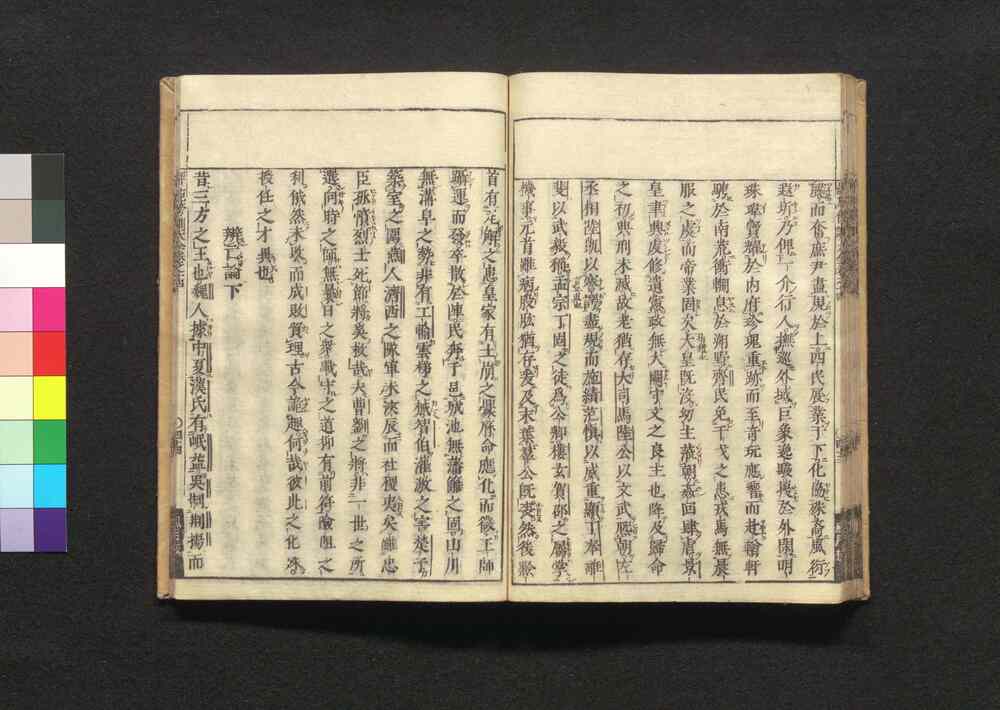 而奮庶尹盡規於上四民展業于下化協殊裔風衍
遐圻乃俾一介行人撫巡外域巨象逸駿擾於外閑明
珠瑋寶耀於内府珍瑰重跡而至奇玩應響而赴輶軒
騁於南荒衝輣息於朔野齊民免干戈之患戎馬無晨
服之虞而帝業固矣大皇既沒幼主莅朝姦回肆虐景
皇聿興虔修遺憲政無大闕守文之良主也降及歸命
之初典刑未滅故老猶存大司馬陸公以文武熙朝左
丞相陸凱以謇諤盡規而施績范慎以威重顯丁奉離
斐以武毅稱孟宗丁固之徒爲公卿樓玄賀邵之屬掌
機事元首雖病股肱猶存爰及末葉羣公既喪然後黔
首有瓦解之患皇家有土崩之釁曆命應化而微王師
躡運而發卒散於陣民奔于邑城池無藩籬之固山川
無溝阜之勢非有工輸雲梯之械智伯灌激之害楚子
築室之圍燕人濟西之隊軍未浹辰而社稷夷矣雖忠
臣孤憤烈士死節將奚救哉夫曹劉之將非一世之所
選向時之師無曩日之衆戰守之道抑有前符險阻之
利俄然未改而成敗貿理古今詭趣何哉彼此之化殊
授任之才異也
辯亡論下
昔三方之王也魏人據中夏漢氏有岷益吳制荆揚而